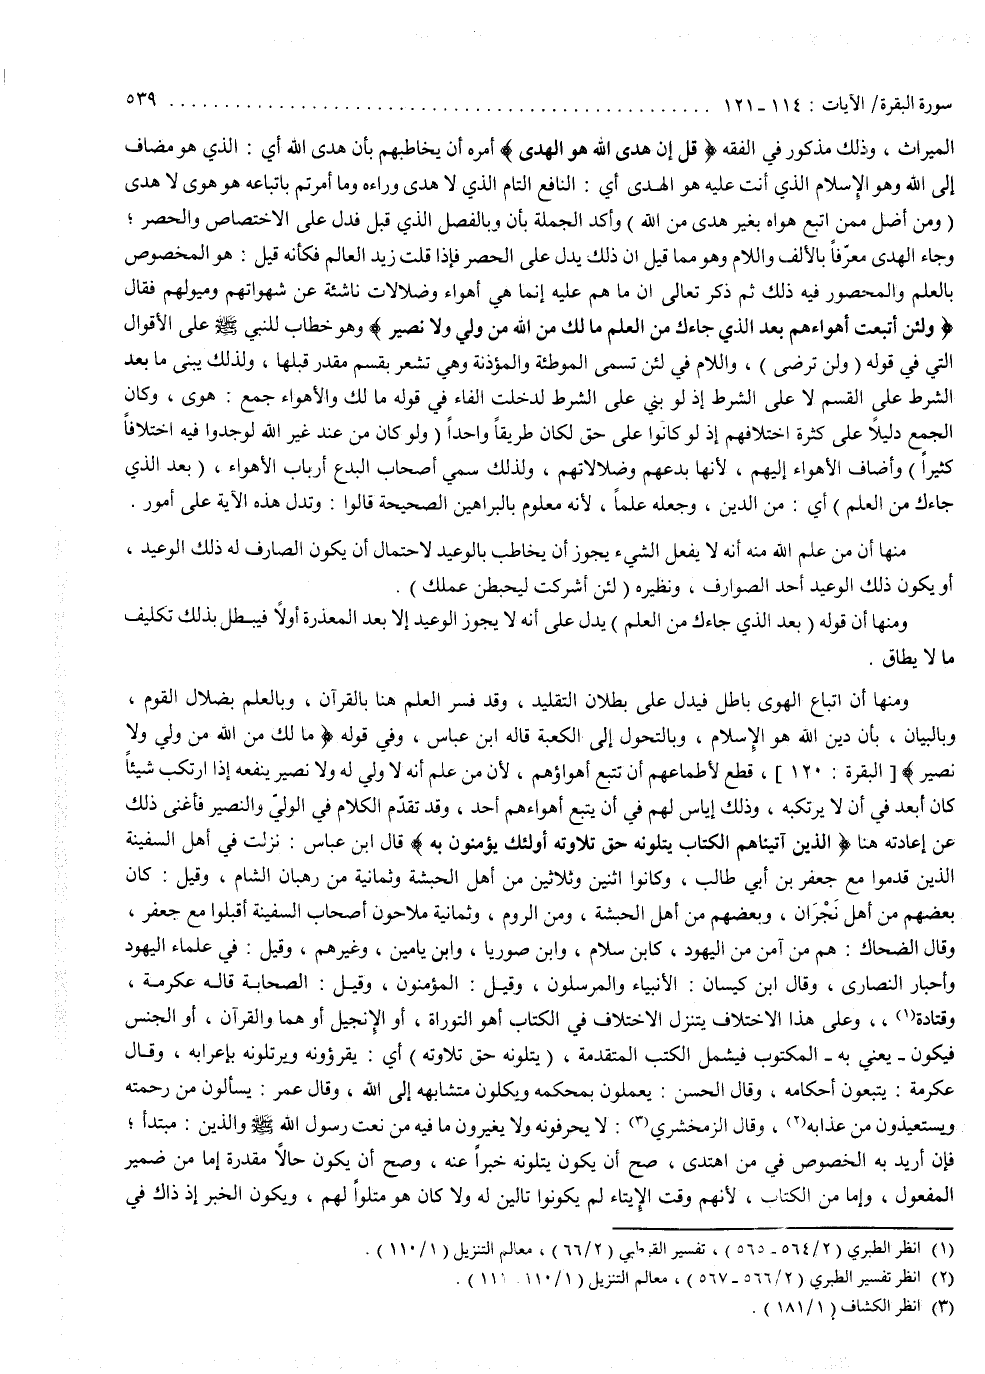 سورة البقرة/ الآيات : ١١٤ ـ ١٢١ ................................................ ٥٣٩
الميراث ، وذلك مذكور في الفقه ﴿ قل إن هدى الله هو الهدى ﴾ أمره أن يخاطبهم بأن هدى الله أي : الذي هو مضاف
إلى الله وهو الإسلام الذي أنت عليه هو الهدى أي : النافع التام الذي لا هدى وراءه وما أمرتم باتباعه هو هوى لا هدى
( ومن أضل ممن اتبع هواه بغير هدى من الله ) وأكد الجملة بأن وبالفصل الذي قبل فدل على الاختصاص والحصر ؛
وجاء الهدى معرّفاً بالألف واللام وهو مما قيل ان ذلك يدل على الحصر فإذا قلت زيد العالم فكأنه قيل : هو المخصوص
بالعلم والمحصور فيه ذلك ثم ذكر تعالى ان ما هم عليه إنما هي أهواء وضلالات ناشئة عن شهواتهم وميولهم فقال
﴿ ولئن أتبعت أهواءهم بعد الذي جاءك من العلم ما لك من الله من ولي ولا نصير ﴾ وهو خطاب للنبي ﷺ على الأقوال
التي في قوله ( ولن ترضى ) ، واللام في لئن تسمى الموطئة والمؤذنة وهي تشعر بقسم مقدر قبلها ، ولذلك يبنى ما بعد
الشرط على القسم لا على الشرط إذ لو بني على الشرط لدخلت الفاء في قوله ما لك والأهواء جمع : هوى ، وكان
الجمع دليلاً على كثرة اختلافهم إذ لو كانوا على حق لكان طريقاً واحداً ( ولو كان من عند غير الله لوجدوا فيه اختلافاً
كثيراً ) وأضاف الأهواء إليهم ، لأنها بدعهم وضلالاتهم ، ولذلك سمي أصحاب البدع أرباب الأهواء ، ( بعد الذي
جاءك من العلم ) أي : من الدين ، وجعله علماً ، لأنه معلوم بالبراهين الصحيحة قالوا : وتدل هذه الآية على أمور .
منها أن من علم الله منه أنه لا يفعل الشيء يجوز أن يخاطب بالوعيد لاحتمال أن يكون الصارف له ذلك الوعيد ،
أو يكون ذلك الوعيد أحد الصوارف ، ونظيره ( لئن أشركت ليحبطن عملك ) .
ومنها أن قوله ( بعد الذي جاءك من العلم ) يدل على أنه لا يجوز الوعيد إلا بعد المعذرة أولاً فيبطل بذلك تكليف
ما لا يطاق .
ومنها أن اتباع الهوى باطل فيدل على بطلان التقليد ، وقد فسر العلم هنا بالقرآن ، وبالعلم بضلال القوم ،
وبالبيان ، بأن دين الله هو الإسلام ، وبالتحول إلى الكعبة قاله ابن عباس ، وفي قوله ﴿ ما لك من الله من ولي ولا
نصير ﴾ [ البقرة : ١٢٠ ] ، قطع لأطماعهم أن تتبع أهواؤهم ، لأن من علم أنه لا ولي له ولا نصير ينفعه إذا ارتكب شيئاً
كان أبعد في أن لا يرتكبه ، وذلك إياس لهم في أن يتبع أهواءهم أحد ، وقد تقدّم الكلام في الوليّ والنصير فأغنى ذلك
عن إعادته هنا ﴿ الذين آتيناهم الكتاب يتلونه حق تلاوته أولئك يؤمنون به ﴾ قال ابن عباس : نزلت في أهل السفينة
الذين قدموا مع جعفر بن أبي طالب ، وكانوا اثنين وثلاثين من أهل الحبشة وثمانية من رهبان الشام ، وقيل : كان
بعضهم من أهل نَجْرَان ، وبعضهم من أهل الحبشة ، ومن الروم ، وثمانية ملاحون أصحاب السفينة أقبلوا مع جعفر ،
وقال الضحاك : هم من آمن من اليهود ، كابن سلام ، وابن صوريا ، وابن يامين ، وغيرهم ، وقيل : في علماء اليهود
وأحبار النصارى ، وقال ابن كيسان : الأنبياء والمرسلون ، وقيل : المؤمنون ، وقيل : الصحابة قاله عكرمة ،
وقتادة(١) ،، وعلى هذا الاختلاف يتنزل الاختلاف في الكتاب أهو التوراة ، أو الإنجيل أو هما والقرآن ، أو الجنس
فيكون ـ يعني به ـ المكتوب فيشمل الكتب المتقدمة ، ( يتلونه حق تلاوته ) أي : يقرؤونه ويرتلونه بإعرابه ، وقال
عكرمة : يتبعون أحكامه ، وقال الحسن : يعملون بمحكمه ويكلون متشابهه إلى الله ، وقال عمر : يسألون من رحمته
ويستعيذون من عذابه(٢) ، وقال الزمخشري(٣) : لا يحرفونه ولا يغيرون ما فيه من نعت رسول الله ﷺ والذين : مبتدأ ؛
فإن أريد به الخصوص في من اهتدى ، صح أن يكون يتلونه خبراً عنه ، وصح أن يكون حالاً مقدرة إما من ضمير
المفعول ، وإما من الكتاب ، لأنهم وقت الإيتاء لم يكونوا تالين له ولا كان هو متلواً لهم ، ويكون الخبر إذ ذاك في
(١) انظر الطبري ( ٢/ ٥٦٤ ـ ٥٦٥ ) ، تفسير القرطبي ( ٢/ ٦٦ ) ، معالم التنزيل ( ١/ ١١٠ ) .
(٢) انظر تفسير الطبري ( ٢/ ٥٦٦ ـ ٥٦٧ ) ، معالم التنزيل ( ١/ ١١٠ ، ١١١ ) .
(٣) انظر الكشاف ( ١/ ١٨١ ) .